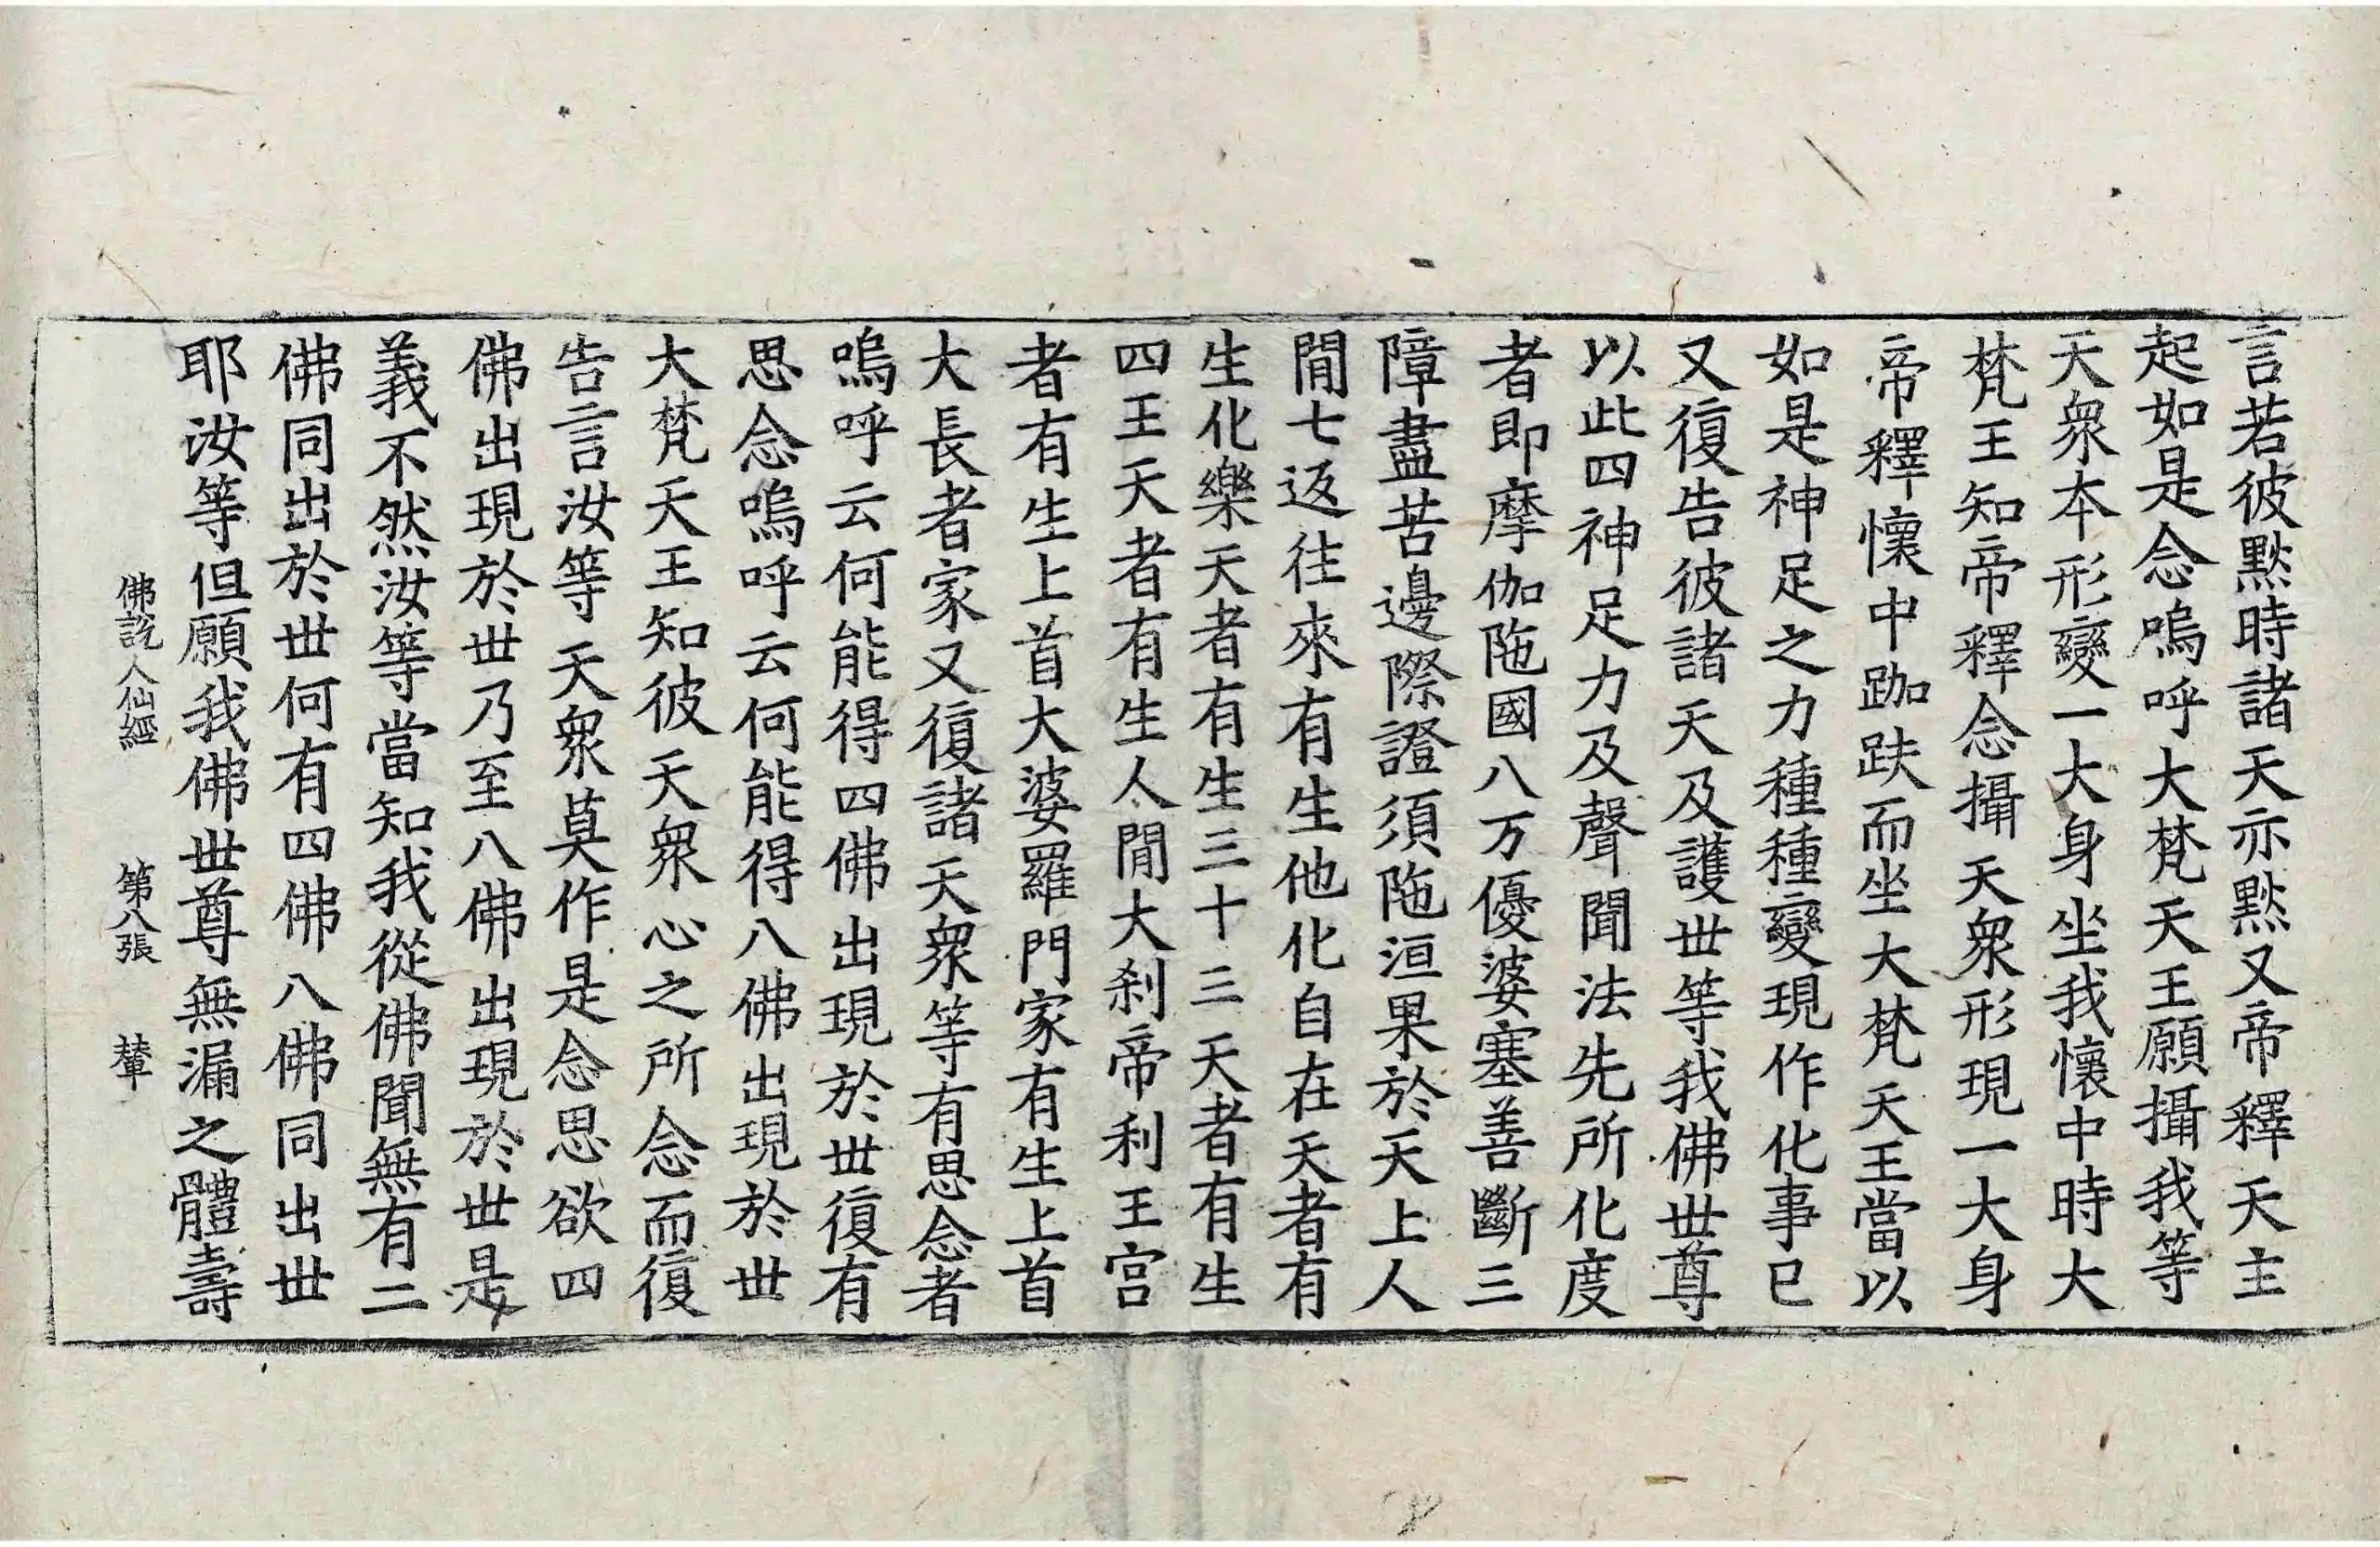 言若彼黙時諸天亦黙又帝釋天主
起如是念嗚呼大梵天王願攝我等
天衆本形變一大身坐我懷中時大
梵王知帝釋念攝天衆形現一大身
帝釋懷中跏趺而坐大梵天王當以
如是神足之力種種變現作化事已
又復告彼諸天及護世等我佛世尊
以此四神足力及聲聞法先所化度
者即摩伽陁國八万優婆塞善斷三
障盡苦邊際證須陁洹果於天上人
閒七返往來有生他化自在天者有
生化樂天者有生三十三天者有生
四王天者有生人閒大刹帝利王宫
者有生上首大婆羅門家有生上首
大長者家又復諸天衆等有思念者
嗚呼云何能得四佛出現於世復有
思念嗚呼云何能得八佛出現於世
大梵天王知彼天衆心之所念而復
告言汝等天衆莫作是念思欲四
佛出現於世乃至八佛出現於世是
義不然汝等當知我從佛聞無有二
佛同出於世何有四佛八佛同出世
耶汝等但願我佛世尊無漏之體壽
佛說人仙經 第八張 輦